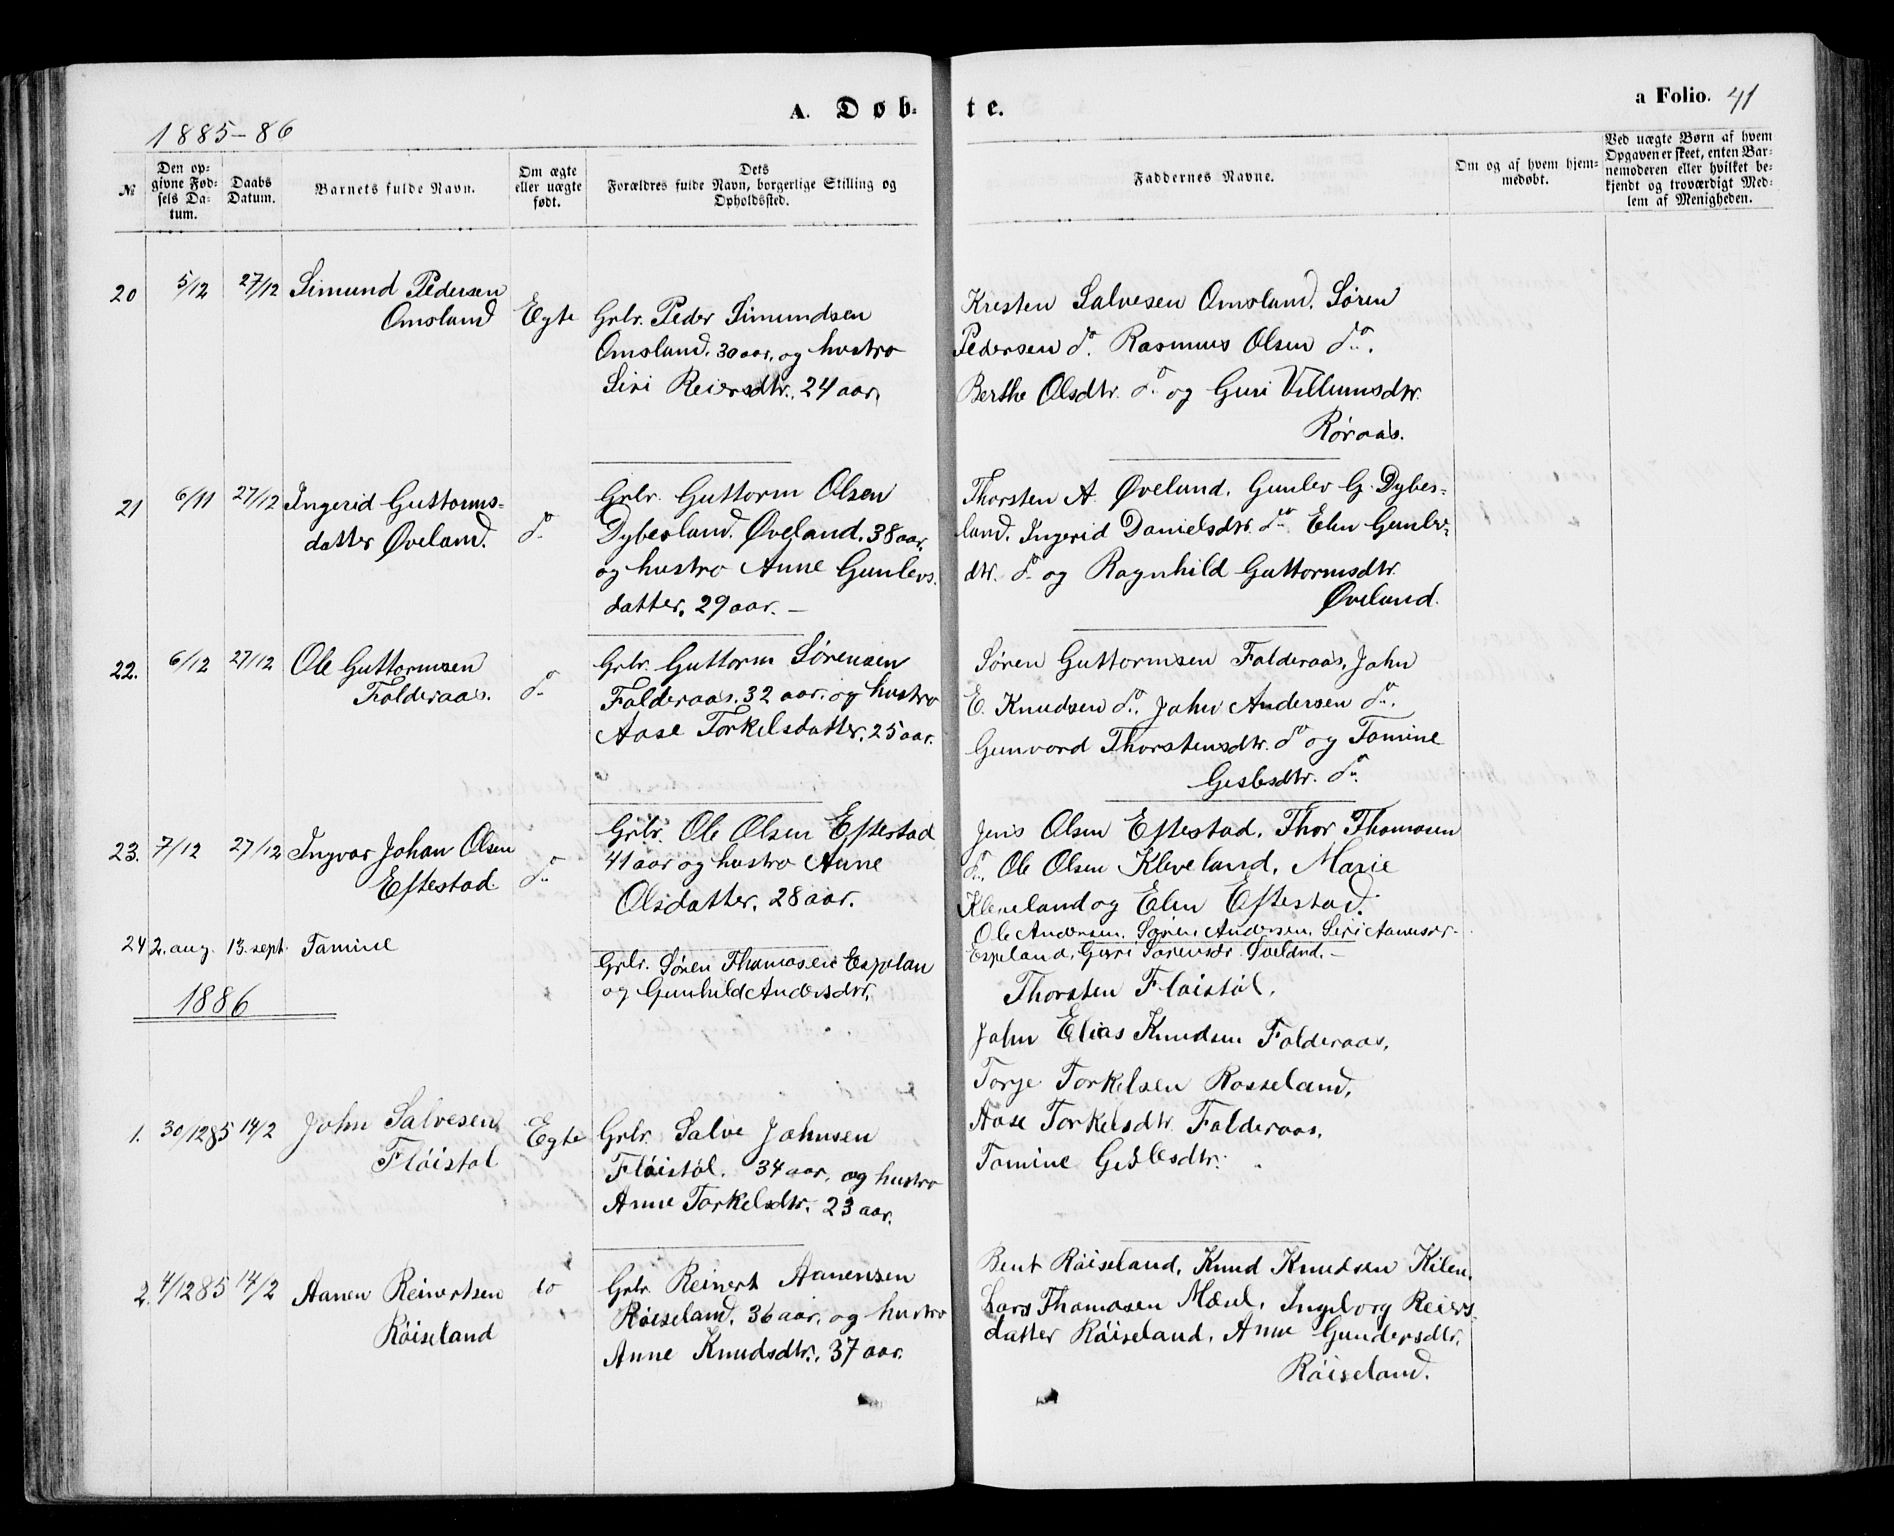 A. Døb-
te.
a Folio. 41
1885-86
№
Den op-
givne Fød-
sels Da-
tum.
Daabs
Datum.
Barnets fulde Navn.
Om ægte
eller uægte
født.
Dets
Forældres fulde Navn, borgerlige Stilling og
Opholdssted.
Faddernes Navne.
Om og af hvem hjem-
medøbt.
Ved uægte Børn af hvem
Opgaven er skeet, enten Bar-
nemoderen eller hvilket be-
kjendt og troværdigt Med-
lem af Menigheden.
20 5/12 27/12 Simund Pedersen
Omsland
Egte
Grbr. Peder Simundsen
Omsland. 30 aar, og hustro
Siri Reiersdtr. 24 aar.
Kresten Salvesen Omsland. Søren
Pedersen do. Rasmus Olsen do.
Berthe Olsdtr. do og Guri Villumsdtr.
Røraas.
21 6/11 27/12 Ingerid Guttorms-
datter Øveland.
do
Grbr. Guttorm Olsen
Dybesland. Øveland. 38 aar,
og hustro Anne Gunlevs.
datter. 29 aar. —
Thorsten A. Øveland. Gunlev G. Dybes-
land. Ingerid Danielsdtr. do Elen Gunlev-
dtr. do og Ragnhild Guttormsdtr.
Øveland.
22. 6/12 27/12 Ole Guttormsen
Falderaas.
do
Grbr. Guttorm Sørensen
Falderaas. 32 aar. og hustro
Aase Torkelsdatter. 25 aar.
Søren Guttormsen Falderaas, John
E. Knudsen do. John Andersen do.
Gunvord Thorstensdtr. do og Tomine
Geslesdtr. do.
23. 7/12 27/12 Ingvar Johan Olsen
Eftestad.
do
Grbr. Ole Olsen Eftestad
41 aar og hustro Anne
Olsdatter. 28 aar.
Jens Olsen Eftestad. Thor Thomasen
do. Ole Olsen Kleveland. Marie
Kleveland og Elen Eftestad.
24 2. aug. 13. sept. Tomine
Grbr. Søren Thomasen Espelan
og Gunhild Andersdtr.
Ole Andersen. Søren Andersen. Siri Aanensdr.
Espeland, Guri Sørensdr. Øveland. —
1886
1. 30/12 85 14/2 John Salvesen
Fløistøl
Egte
Grbr. Salve Johnsen
Fløistøl. 34 aar, og hustro
Anne Torkelsdtr. 23 aar.
Thorsten Fløistøl.
John Elias Knudsen Falderaas,
Torje Torkelsen Rosseland,
Aase Torkelsdtr. Falderaas,
Tomine Geslesdtr.
2. 4/12 85 14/2 Aanen Reinertsen
Røiseland
do
Grbr. Reinert Aanensen
Røiseland. 36 aar, og hustro
Anne Knudsdtr. 37 aar.
Bent Røiseland, Knud Knudsen Kilen,
Lars Thomasen Mæsel. Ingeborg Reiers-
datter Røiseland, Anne Gundersdtr.
Røiseland.